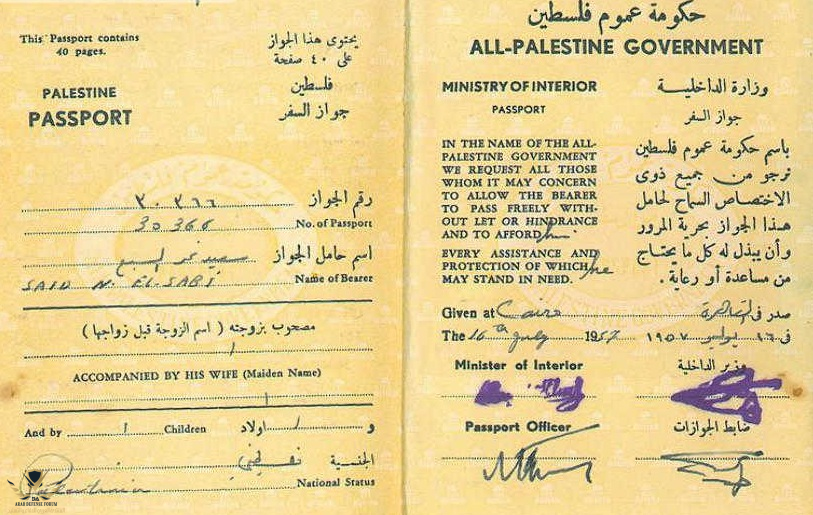 This Passport contains
40 pages.
يحتوى هذا الجواز
على ٤٠ صفحة
PALESTINE
PASSPORT
فلسطين
جواز السفر
رقم الجواز ٣٠٣٦٦
30366 No. of Passport
اسم حامل الجواز سعيد نمر السبع
SAID N. EL-SABI Name of Bearer
مصحوب بزوجته ( اسم الزوجة قبل زواجها )
ACCOMPANIED BY HIS WIFE (Maiden Name)
And by / Children و / اولاد
الجنسية فلسطيني
Palestinian National Status
ARAB DEFENSE FORUM
حكومة عموم فلسطين
ALL-PALESTINE GOVERNMENT
MINISTRY OF INTERIOR
PASSPORT
وزارة الداخلية
جواز السفر
IN THE NAME OF THE ALL-
PALESTINE GOVERNMENT
WE REQUEST ALL THOSE
WHOM IT MAY CONCERN
TO ALLOW THE BEARER
TO PASS FREELY WITH-
OUT LET OR HINDRANCE
AND TO AFFORD him
EVERY ASSISTANCE AND
PROTECTION OF WHICH he
MAY STAND IN NEED.
باسم حكومة عموم فلسطين
نرجو من جميع ذوى
الاختصاص السماح لحامل
هذا الجواز بحرية المرور
وأن يبذل له كل ما يحتاج
من مساعدة أو رعاية .
Given at Cairo صدر فى القاهرة
The 16th July 1957 فى ١٦ يوليو ١٩٥٧
Minister of Interior وزير الداخلية
Passport Officer ضابط الجوازات